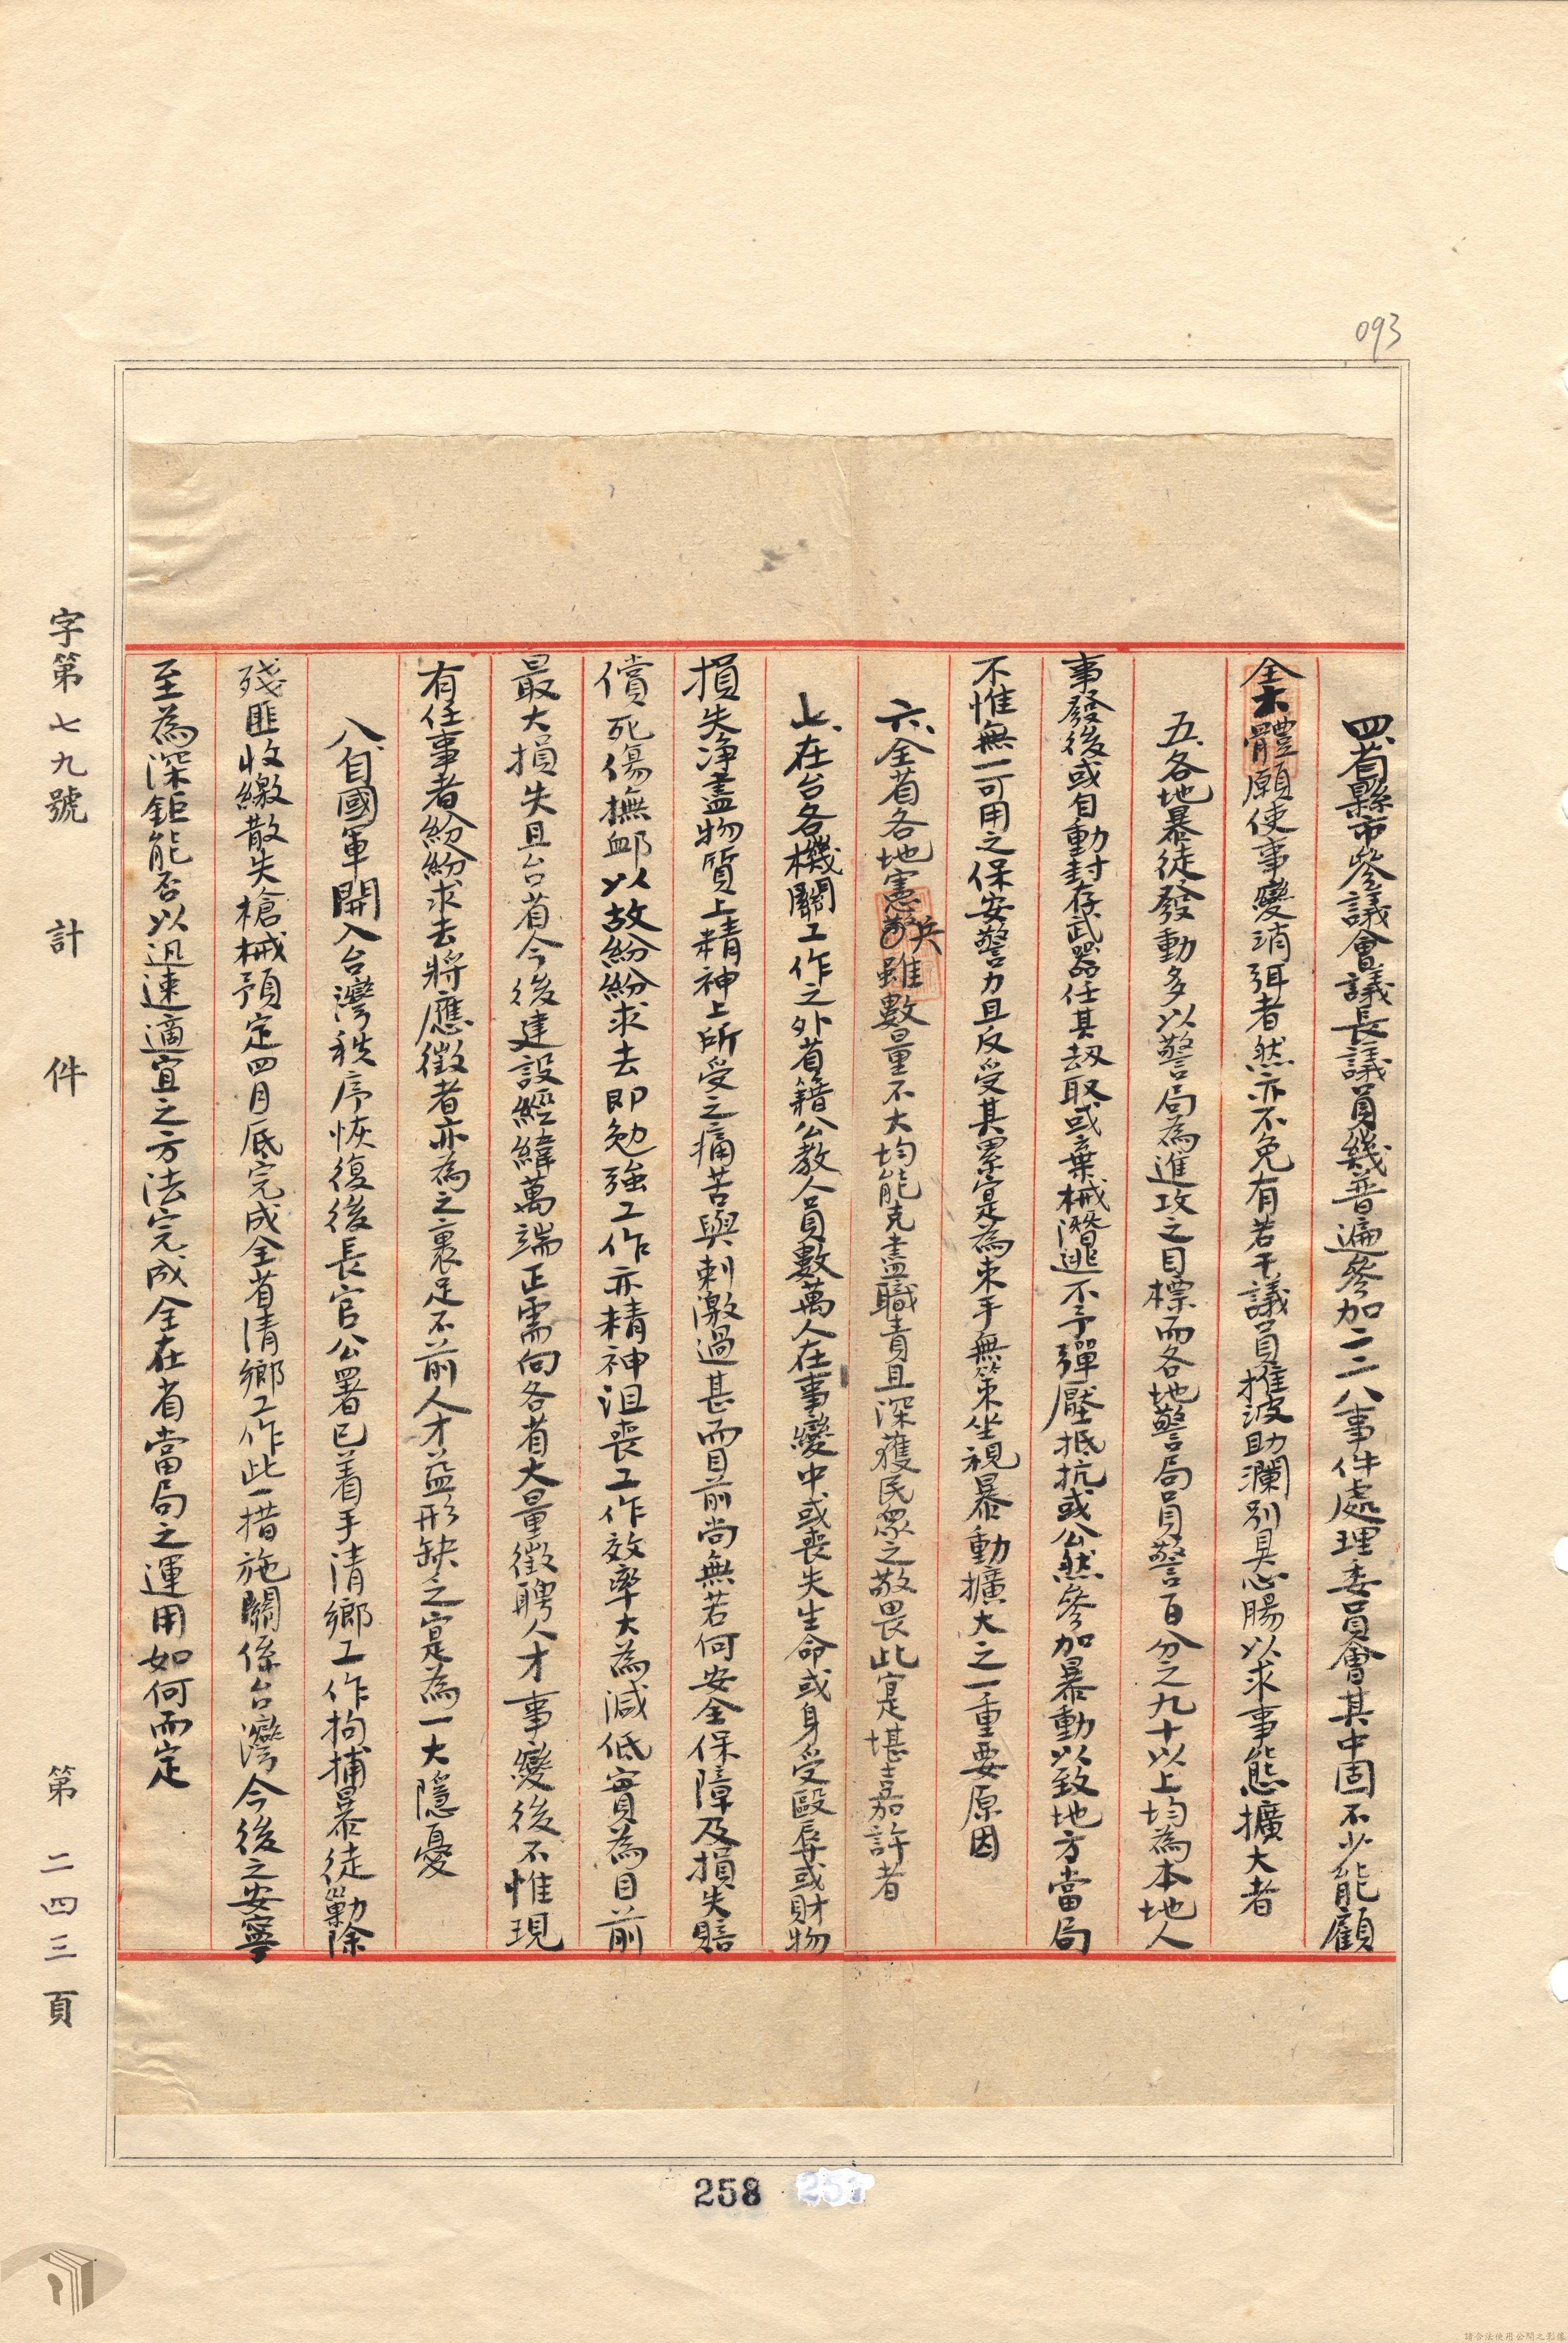 093
四、省縣市參議會議長議員幾普遍參加二二八事件處理委員會其中固不少能顧
全大體願使事變消弭者然亦不免有若干議員推波助瀾別具心腸以求事態擴大者
五、各地暴徒發動多以警局為進攻之目標而各地警局員警百分之九十以上均為本地人
事發後或自動封存武器任其劫取或棄械潛逃不予彈壓抵抗或公然參加暴動以致地方當局
不惟無一可用之保安警力且反受其累寔為束手無策坐視暴動擴大之一重要原因
六、全省各地憲兵雖數量不大均能克盡職責且深獲民眾之敬畏此寔堪嘉許者
七、在台各機關工作之外省籍公教人員數萬人在事變中或喪失生命或身受毆辱或財物
損失净盡物質上精神上所受之痛苦與刺激過甚而目前尚無若何安全保障及損失賠
償死傷撫卹以故紛紛求去即勉強工作亦精神沮喪工作效率大為減低實為目前
最大損失且台省今後建設經緯萬端正需向各省大量徵聘人才事變後不惟現
有任事者紛紛求去將應徵者亦為之裹足不前人才益形缺乏寔為一大隱憂
八、自國軍開入台灣秩序恢復後長官公署已着手清鄉工作拘捕暴徒勦除
殘匪收繳散失槍械預定四月底完成全省清鄉工作此一措施關係台灣今後之安寧
至為深鉅能否以迅速適宜之方法完成全在省當局之運用如何而定
字第七九號 計 件 第二四三頁
258
請合法使用公開之影像